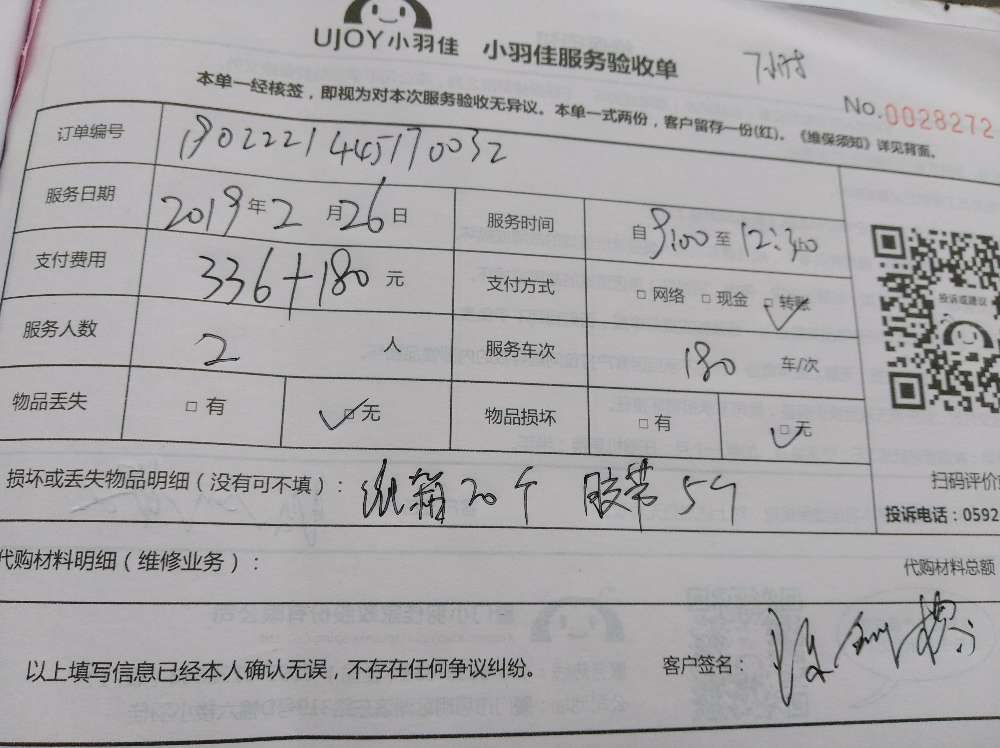 UJOY小羽佳 小羽佳服务验收单 7小时
No.0028272
本单一经核签，即视为对本次服务验收无异议。本单一式两份，客户留存一份(红)。《维保须知》详见背面。
订单编号 1902221445170032
服务日期 2019年2月26日 服务时间 自9:00至12:40
支付费用 336+180元 支付方式 □网络 □现金 □转账
服务人数 2人 服务车次 180 车/次
物品丢失 □有 □无 物品损坏 □有 □无
投诉或建议
扫码评价
投诉电话：0592
损坏或丢失物品明细（没有可不填）： 纸箱20个 胶带5个
代购材料明细（维修业务）： 代购材料总额
以上填写信息已经本人确认无误，不存在任何争议纠纷。 客户签名：